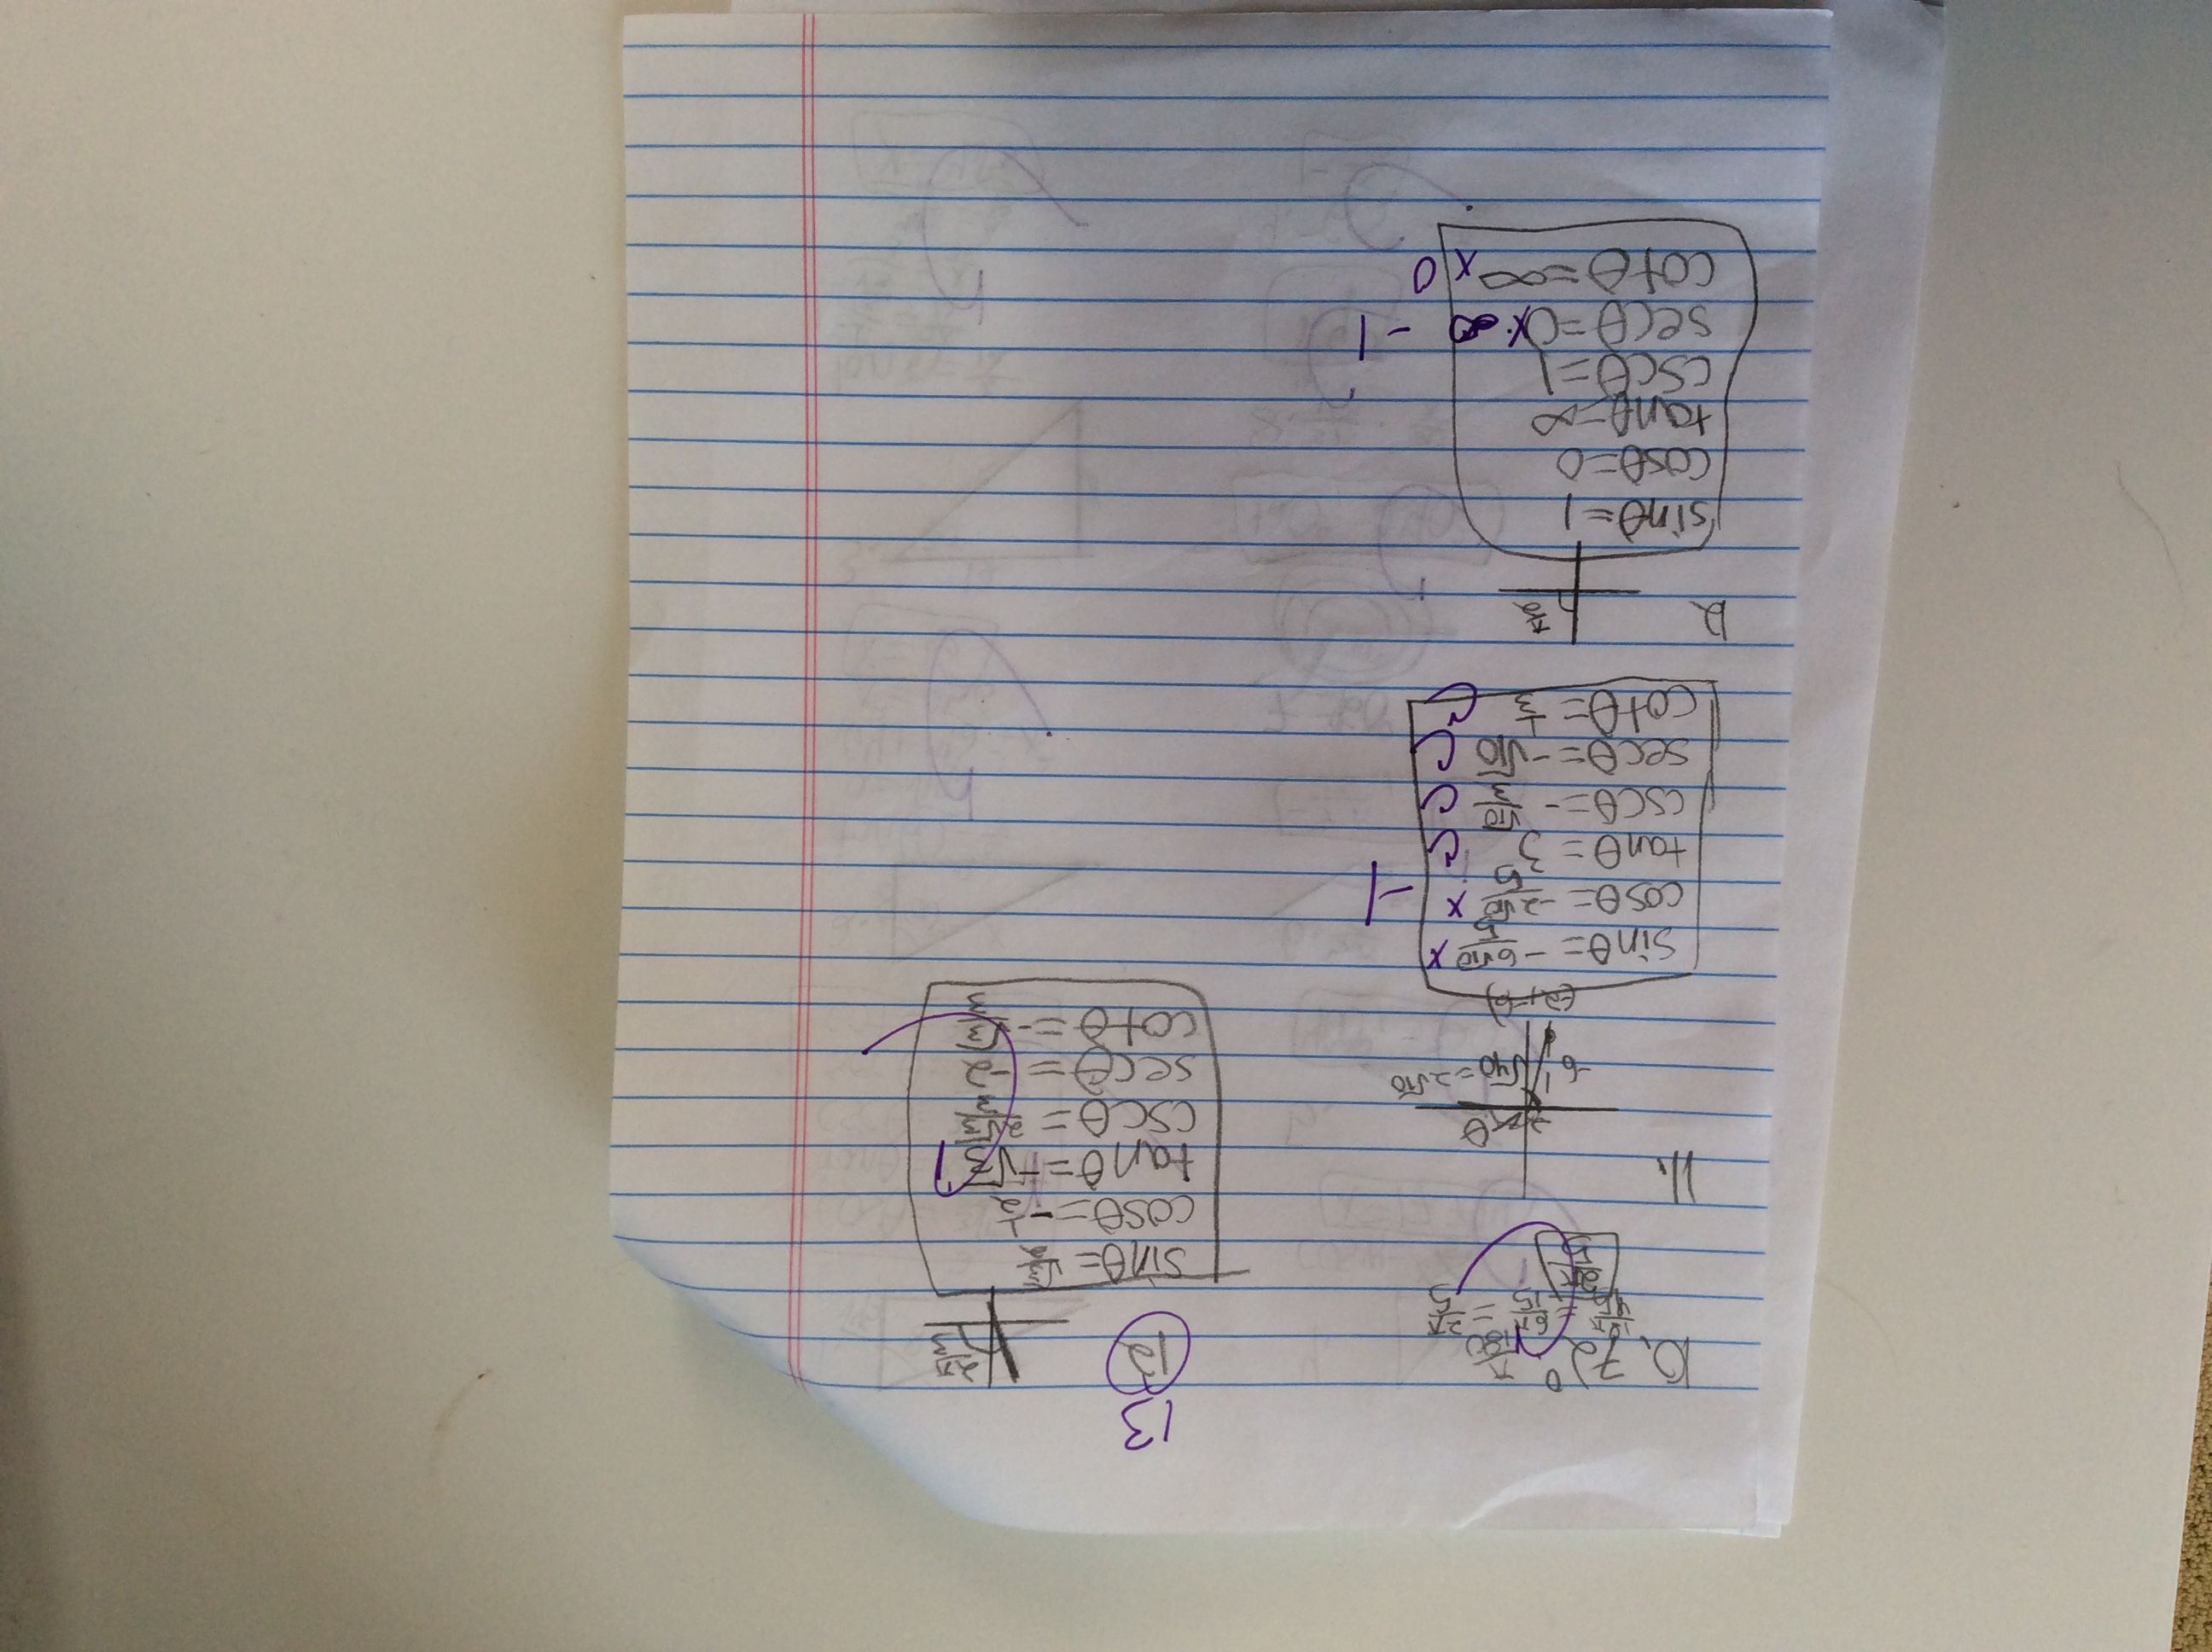 10. 72° · π/180
= 6π/15 = 2π/5
2π/5
11.
θ
-2
-6
√40 = 2√10
(-2, -6)
sinθ = -6√10/5 x
cosθ = -2√10/5 x
-1
tanθ = 3 C
cscθ = -√10/3 C
secθ = -√10 C
cotθ = 1/3 C
12
π/2
sinθ = 1
cosθ = 0
tanθ = ∞
cscθ = 1
secθ = 0 x ∞ -1
cotθ = ∞ x 0
13
12
2π/3
sinθ = √3/2
cosθ = -1/2
tanθ = -√3
cscθ = 2√3/3
secθ = -2
cotθ = -√3/3